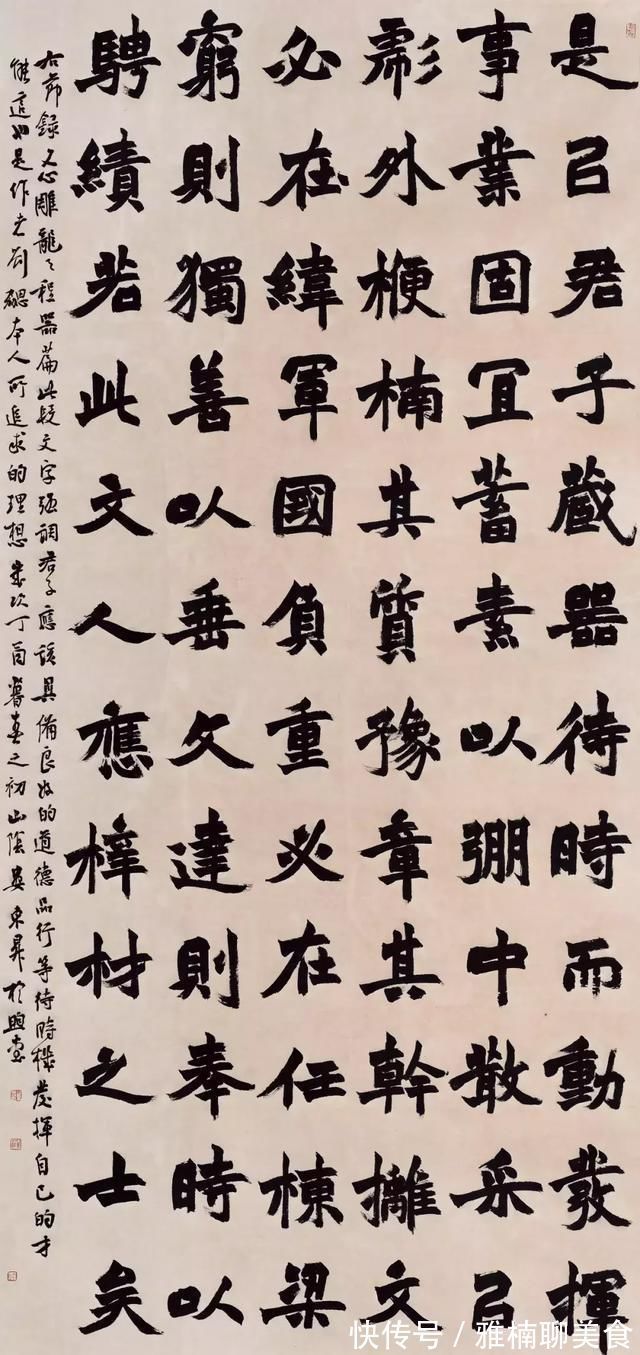 是㠯君子藏器待時而動發揮
事業固宜蓄素以弸中散采㠯
彪外楩楠其質豫章其幹攡文
必在緯軍國負重必在任棟梁
窮則獨善以垂文達則奉時以
騁績若此文人應梓材之士矣
右節錄文心雕龍之程器篇此段文字强調君子應該具備良好的道德品行等待時機發揮自己的才
能這也是作者劉勰本人所追求的理想歲次丁酉暮春之初山陰東昇於
快传号/雅楠聊美食